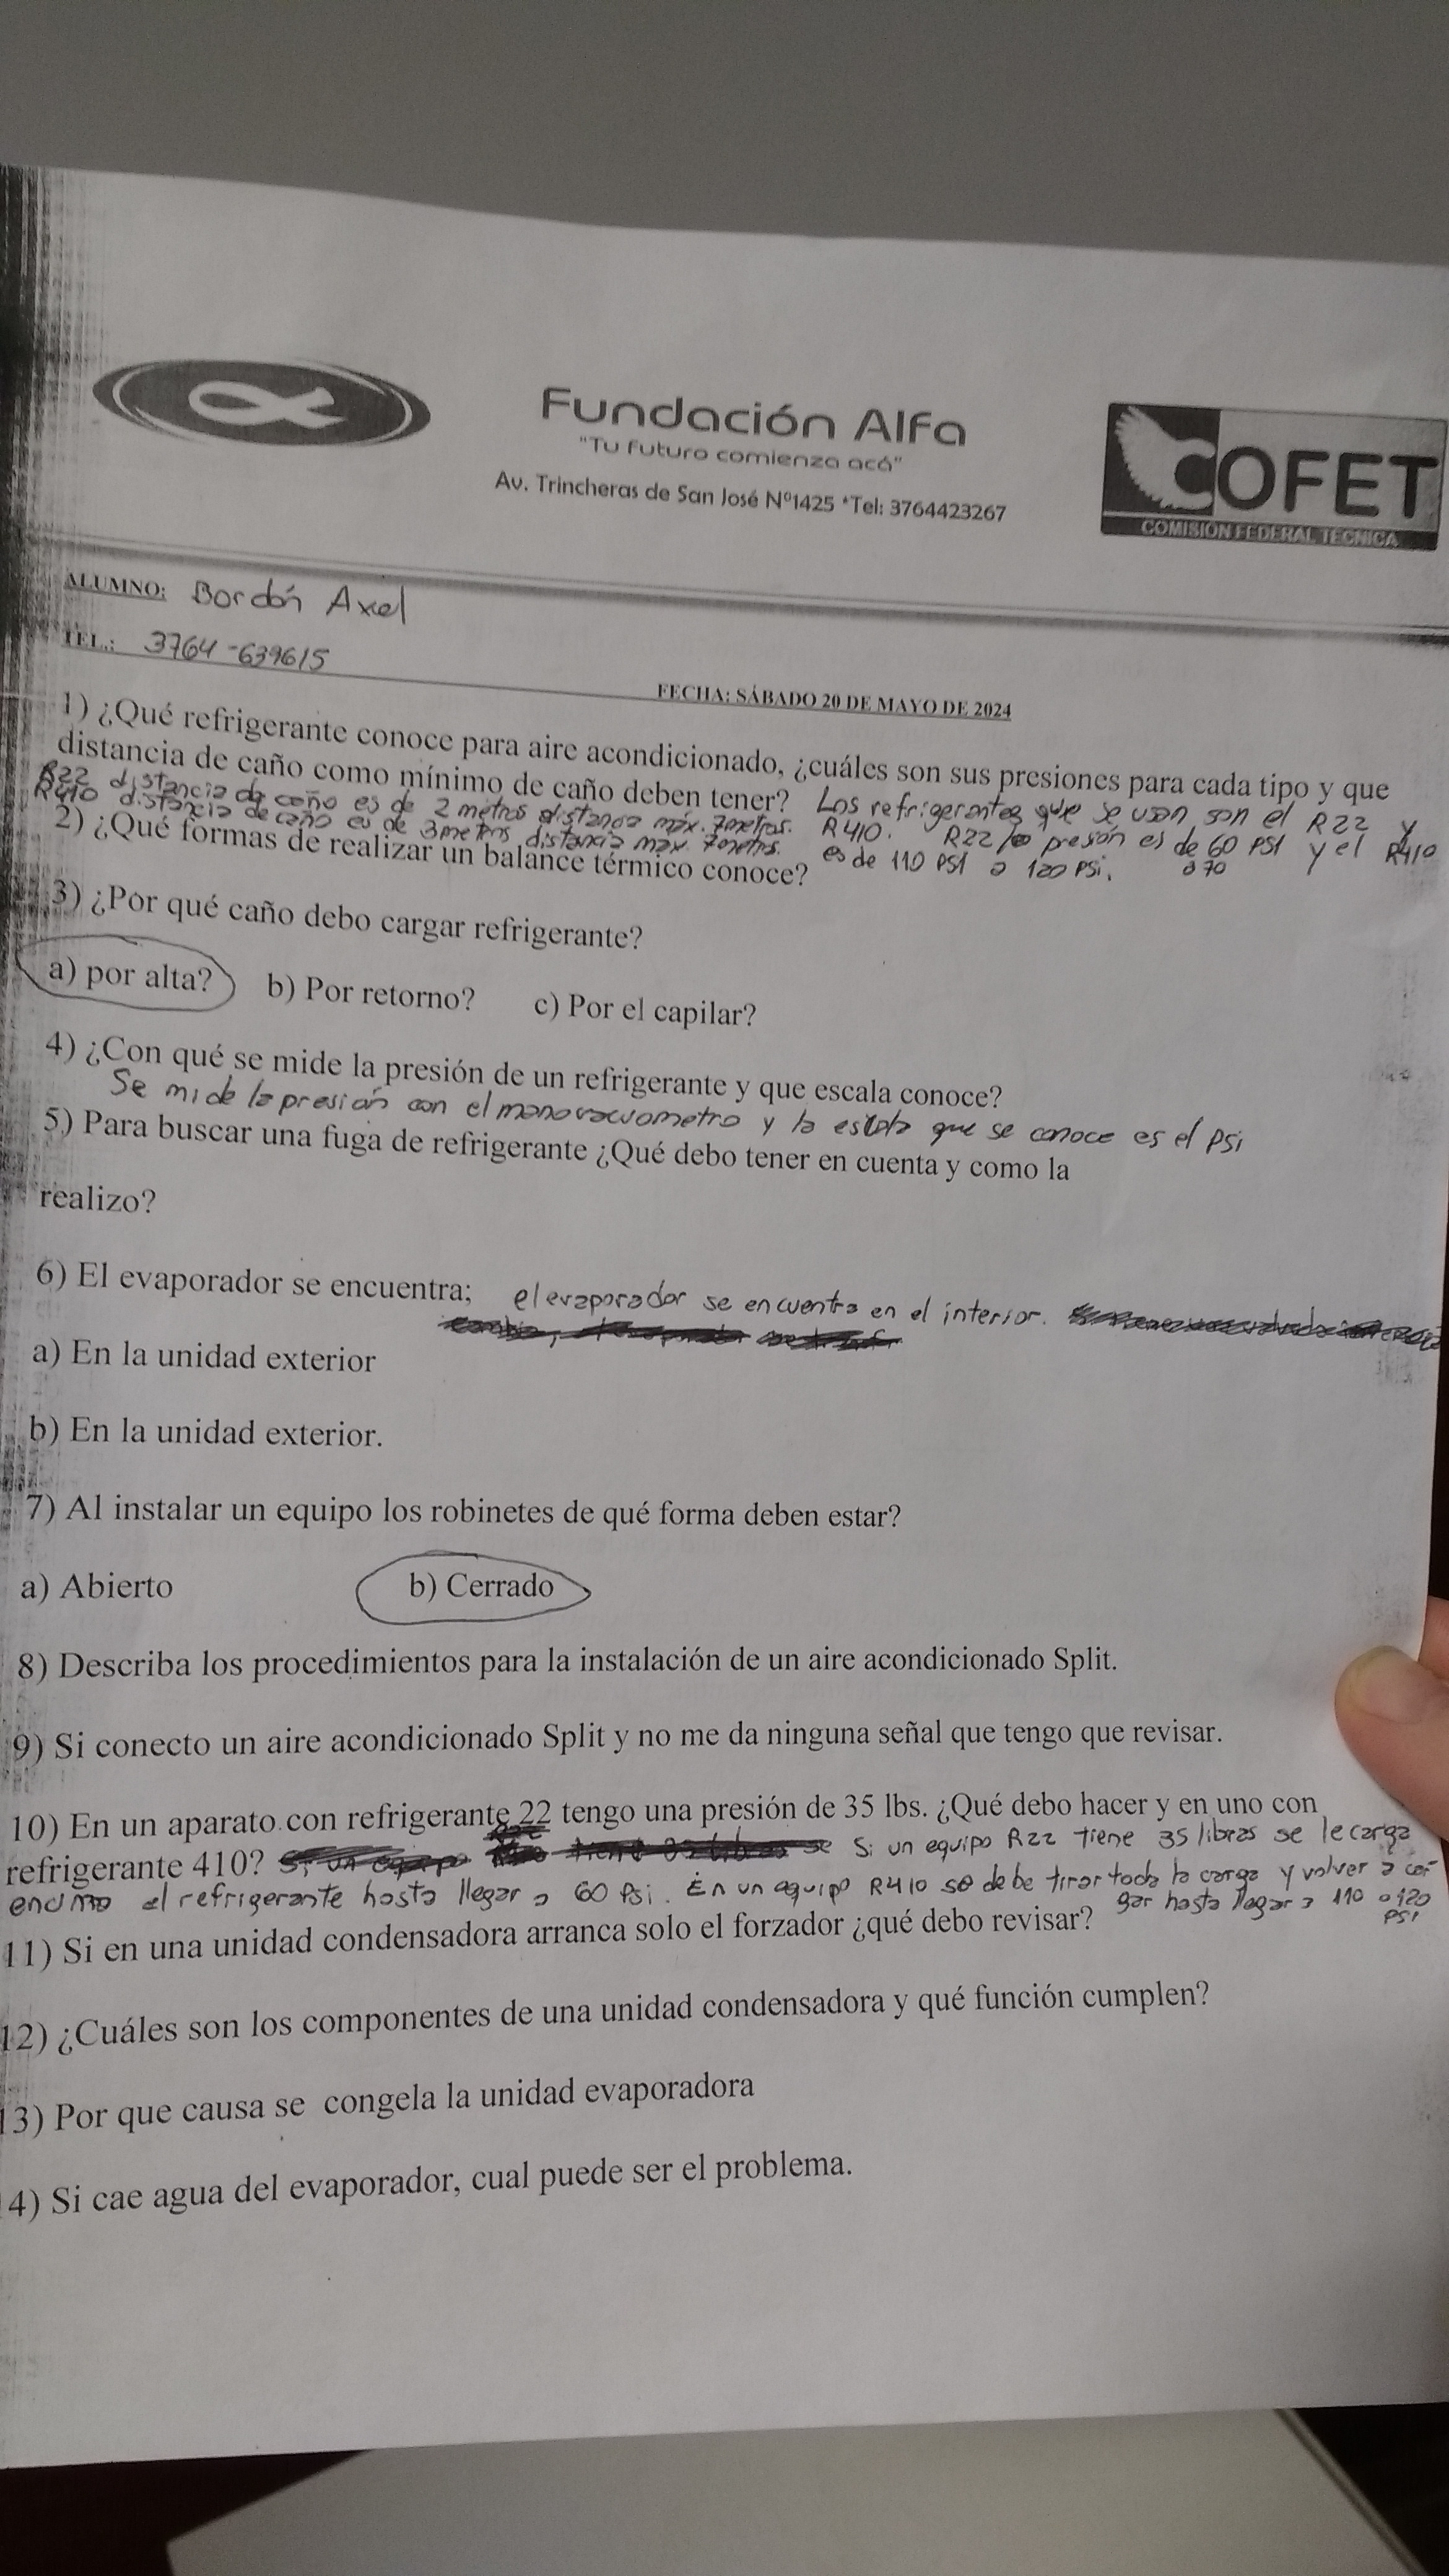 Fundación Alfa
"Tu futuro comienza acá"
Av. Trincheras de San José Nº1425 *Tel: 3764423267
COFET
COMISIÓN FEDERAL TÉCNICA
ALUMNO: Bordón Axel
TEL.: 3764-639615
FECHA: SÁBADO 20 DE MAYO DE 2024
1) ¿Qué refrigerante conoce para aire acondicionado, ¿cuáles son sus presiones para cada tipo y que
distancia de caño como mínimo de caño deben tener? Los refrigerantes que se usan son el R22 y
R410. R22 la presión es de 60 PSI y el R410
ó 70
es de 110 PSI a 120 PSi.
R22 distancia de caño es de 2 metros distancia máx. 7metros.
R410 distancia de caño es de 3metros distancia max. 7metrs.
2) ¿Qué formas de realizar un balance térmico conoce?
3) ¿Por qué caño debo cargar refrigerante?
a) por alta? b) Por retorno? c) Por el capilar?
4) ¿Con qué se mide la presión de un refrigerante y que escala conoce?
Se mide la presión con el manovacuometro y la que se conoce es el PSi
5) Para buscar una fuga de refrigerante ¿Qué debo tener en cuenta y como la
realizo?
6) El evaporador se encuentra; el evaporador se encuentra en el interior.
a) En la unidad exterior
b) En la unidad exterior.
7) Al instalar un equipo los robinetes de qué forma deben estar?
a) Abierto b) Cerrado
8) Describa los procedimientos para la instalación de un aire acondicionado Split.
9) Si conecto un aire acondicionado Split y no me da ninguna señal que tengo que revisar.
10) En un aparato con refrigerante 22 tengo una presión de 35 lbs. ¿Qué debo hacer y en uno con
refrigerante 410? Si un equipo R22 tiene 35 libras se le carga
encima el refrigerante hasta llegar a 60 Psi. En un equipo R410 se debe tirar toda la carga y volver a car
gar hasta llegar a 110 o 120
PSi
11) Si en una unidad condensadora arranca solo el forzador ¿qué debo revisar?
12) ¿Cuáles son los componentes de una unidad condensadora y qué función cumplen?
13) Por que causa se congela la unidad evaporadora
4) Si cae agua del evaporador, cual puede ser el problema.